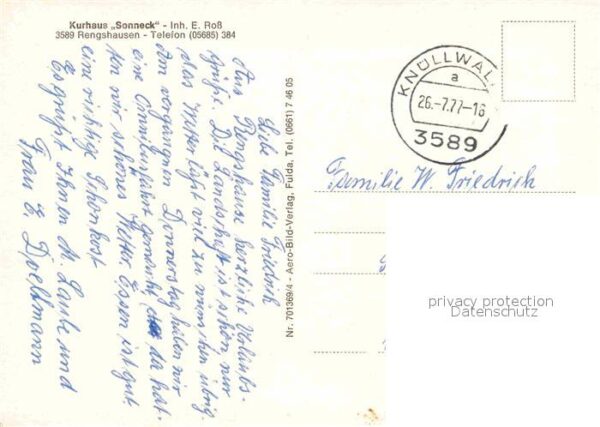 Kurhaus „Sonneck" - Inh. E. Roß
3589 Rengshausen - Telefon (05685) 384
Liebe Familie Friedrich
Aus Rengshausen herzliche Urlaubs-
grüße. Die Landschaft ist schön, nur
das Wetter läßt viel zu wünschen übrig
Am vergangenen Donnerstag haben wir
eine Omnibusfahrt gemacht, da hat-
ten wir schönes Wetter Essen ist gut
eine richtige Schonkost
Es grüßt Ihnen M. Laube und
Frau E. Doellmann
Nr. 701369/4 - Aero-Bild-Verlag, Fulda, Tel. (0661) 7 46 05
KNÜLLWAL
a
26.-7.77-16
3589
Familie W. Friedrich
privacy protection
Datenschutz